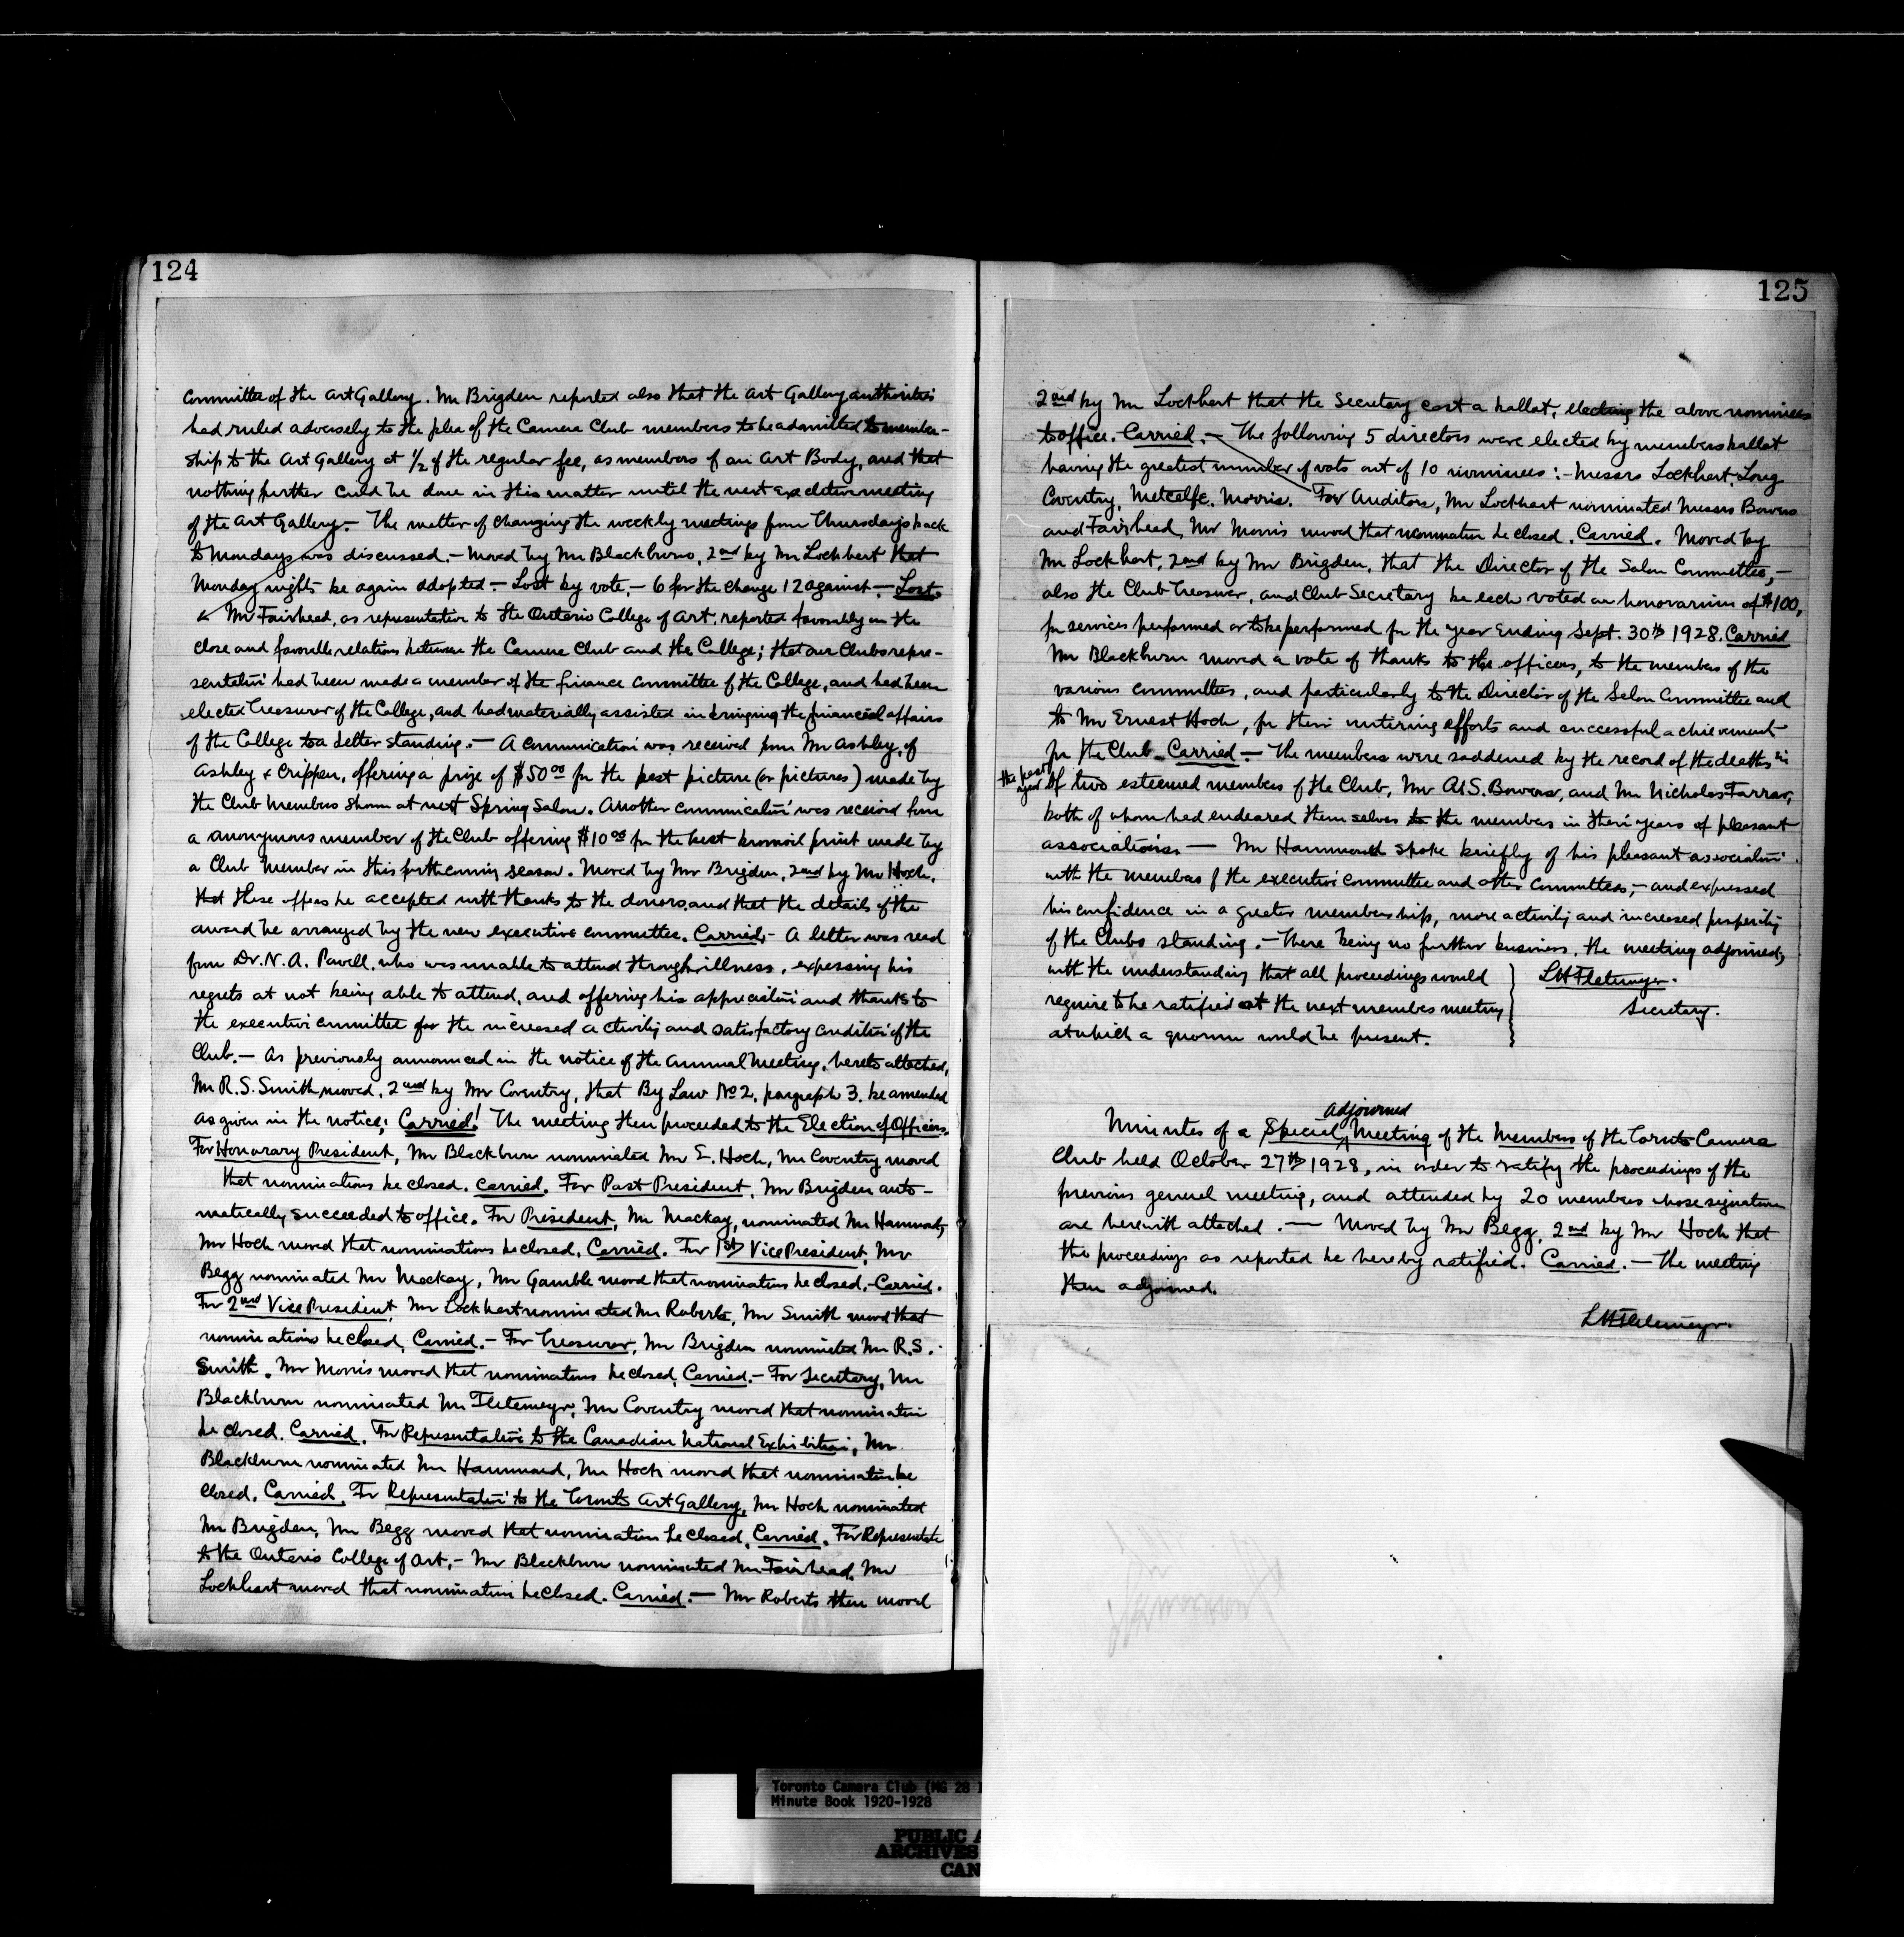 124
Committee of the Art Gallery. Mr Brigden reported also that the Art Gallery authorities
had ruled adversely to the plea of the Camera Club members to be admitted to member-
ship to the Art Gallery at 1/2 of the regular fee, as members of an Art Body, and that
nothing further could be done in this matter until the next executive meeting
of the Art Gallery. - The matter of changing the weekly meetings from Thursdays back
to Mondays was discussed. - Moved by Mr Blackburn, 2nd by Mr Lockhart that
Monday nights be again adopted - Lost by vote, - 6 for the change 12 against. - Lost.
Mr Fairhead, as representative to the Ontario College of Art, reported favorably on the
close and favorable relations between the Camera Club and the College; that our Clubs repre-
sentative had been made a member of the finance Committee of the College, and had been
elected Treasurer of the College, and had materially assisted in bringing the financial affairs
of the College to a better standing. - A Communication was received from Mr Ashley, of
Ashley & Crippen, offering a prize of $50.00 for the best picture (or pictures) made by
the Club Members shown at next Spring Salon. Another communication was received from
a anonymous member of the Club offering $10.00 for the best bromoil print made by
a Club Member in this forthcoming season. Moved by Mr Brigden, 2nd by Mr Hoch,
that these offers be accepted with thanks to the donors, and that the details of the
award be arranged by the new executive committee. Carried. - A letter was read
from Dr. N. A. Powell, who was unable to attend through illness, expressing his
regrets at not being able to attend, and offering his appreciation and thanks to
the executive committee for the increased activity and satisfactory condition of the
Club. - As previously announced in the notice of the Annual Meeting, hereto attached,
Mr R. S. Smith moved, 2nd by Mr Coventry, that By Law No 2, paragraph 3, be amended
as given in the notice; Carried! The meeting then proceeded to the Election of Officers.
For Honorary President, Mr Blackburn nominated Mr E. Hoch, Mr Coventry moved
that nominations be closed. Carried. For Past President, Mr Brigden auto-
matically succeeded to office. For President, Mr Mackay, nominated Mr Hammond,
Mr Hoch moved that nominations be closed, Carried. For 1st Vice President, Mr
Begg nominated Mr Mackay, Mr Gamble moved that nominations be closed, - Carried.
For 2nd Vice President, Mr Lockhart nominated Mr Roberts, Mr Smith moved that
nominations be closed, Carried. - For Treasurer, Mr Brigden nominated Mr R. S.
Smith. Mr Morris moved that nominations be closed, Carried. - For Secretary, Mr
Blackburn nominated Mr Fletemeyer, Mr Coventry moved that nomination
be closed. Carried. For Representative to the Canadian National Exhibition, Mr
Blackburn nominated Mr Hammond, Mr Hoch moved that nomination be
closed. Carried. For Representative to the Toronto Art Gallery, Mr Hoch nominated
Mr Brigden, Mr Begg moved that nomination be closed, Carried. For Representative
to the Ontario College of Art, - Mr Blackburn nominated Mr Fairhead, Mr
Lockhart moved that nomination be closed. Carried. - Mr Roberts then moved
125
2nd by Mr Lockhart that the Secretary cast a ballot, electing the above nominees
to office. Carried. - The following 5 directors were elected by members ballot
having the greatest number of vots out of 10 nominees: - Messrs Lockhart, Long
Coventry, Metcalfe, Morris. For Auditors, Mr Lockhart nominated Messrs Bowers
and Fairhead, Mr Morris moved that nomination be closed. Carried. Moved by
Mr Lockhart, 2nd by Mr Brigden, that the Director of the Salon Committee, -
also the Club Treasurer, and Club Secretary be each voted an honorarium of $100,
for services performed or to be performed for the year ending Sept. 30th 1928. Carried
Mr Blackburn moved a vote of thanks to the officers, to the members of the
various committees, and particularly to the Director of the Salon Committee and
to Mr Ernest Hoch, for their untiring efforts and successful achievement
for the Club. Carried. - The members were saddened by the record of the deaths in
the past year of two esteemed members of the Club, Mr A. S. Bowers, and Mr Nicholas Farrar,
both of whom had endeared themselves to the members in their years of pleasant
associations. - Mr Hammond spoke briefly of his pleasant association
with the members of the executive committee and other committees, - and expressed
his confidence in a greater membership, more activity and increased prosperity
of the Clubs standing. - There being no further business, the meeting adjourned,
with the understanding that all proceedings would
require to be ratified at the next members meeting
at which a quorum would be present.
LH Fletemeyer.
Secretary.
Minutes of a Special adjourned Meeting of the Members of the Toronto Camera
Club held October 27th 1928, in order to ratify the proceedings of the
previous general meeting, and attended by 20 members whose signatures
are herewith attached. - Moved by Mr Begg, 2nd by Mr Hoch that
the proceedings as reported be hereby ratified. Carried. - The meeting
then adjourned.
LH Fletemeyer.
Toronto Camera Club (MG 28 I
Minute Book 1920-1928
PUBLIC A
ARCHIVES
CAN